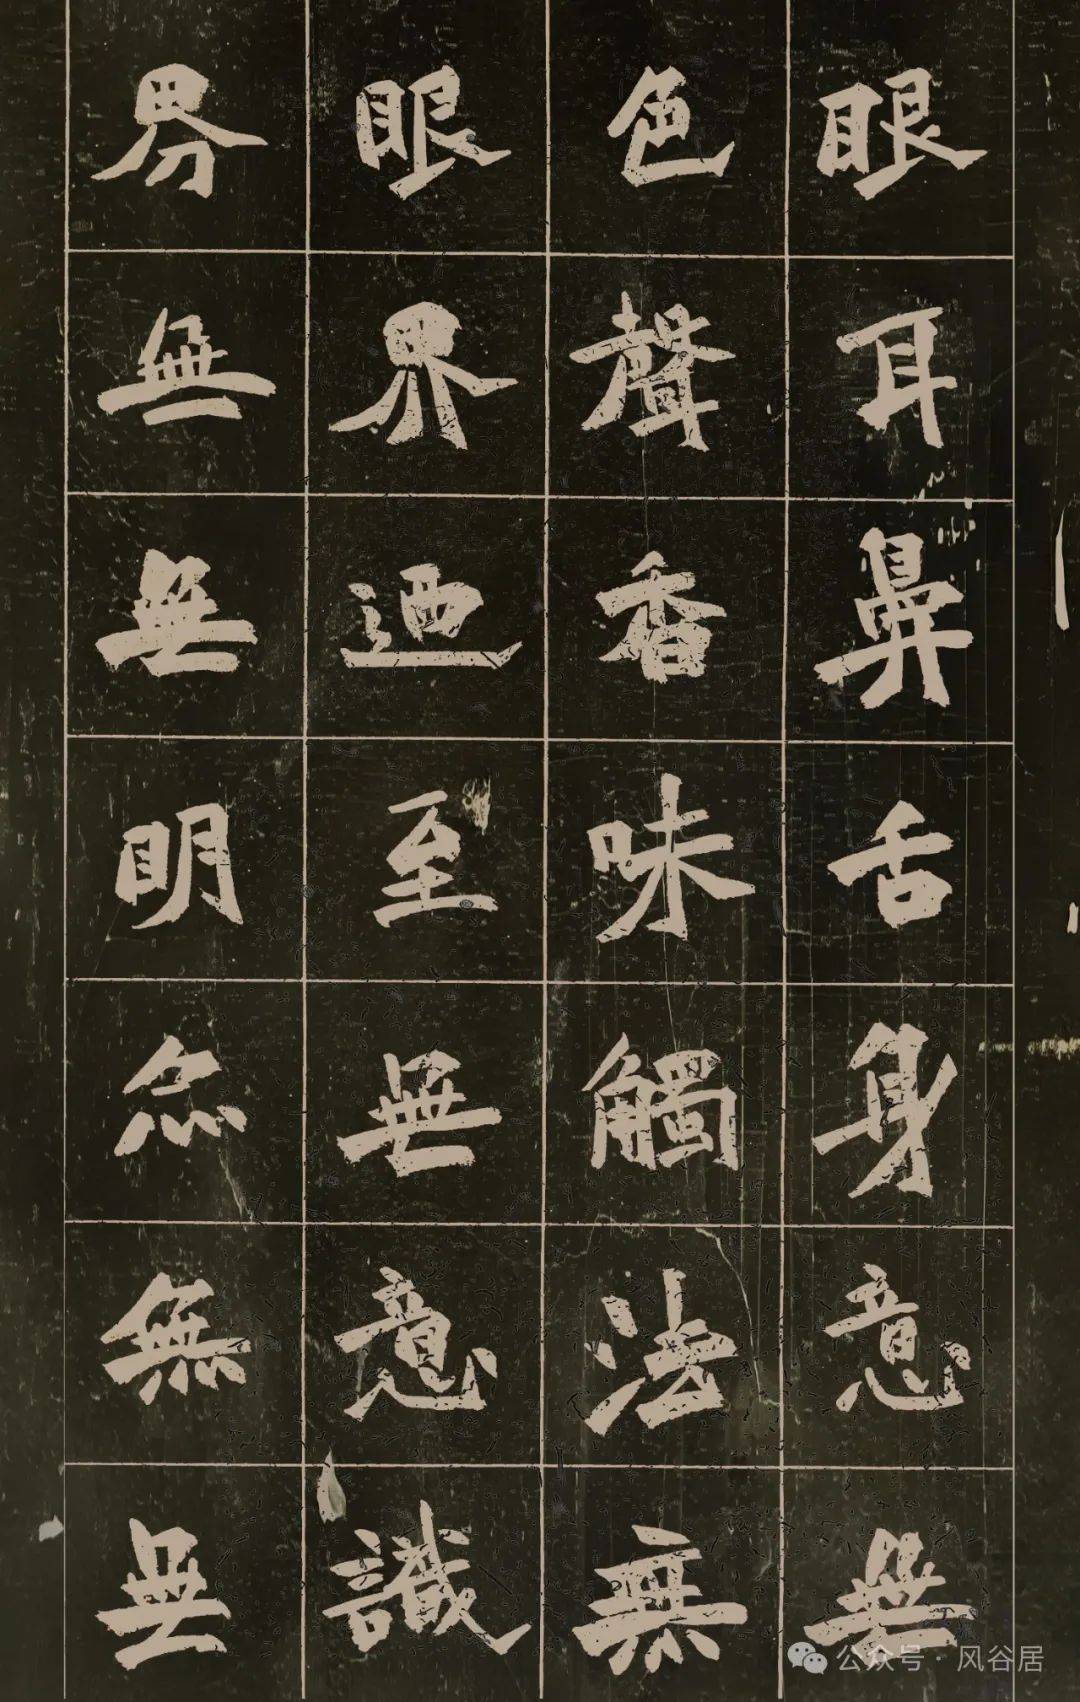 眼耳鼻舌身意無
色聲香味觸法無
眼界迺至無意識
界無無明亦無無
公众号 · 风谷居